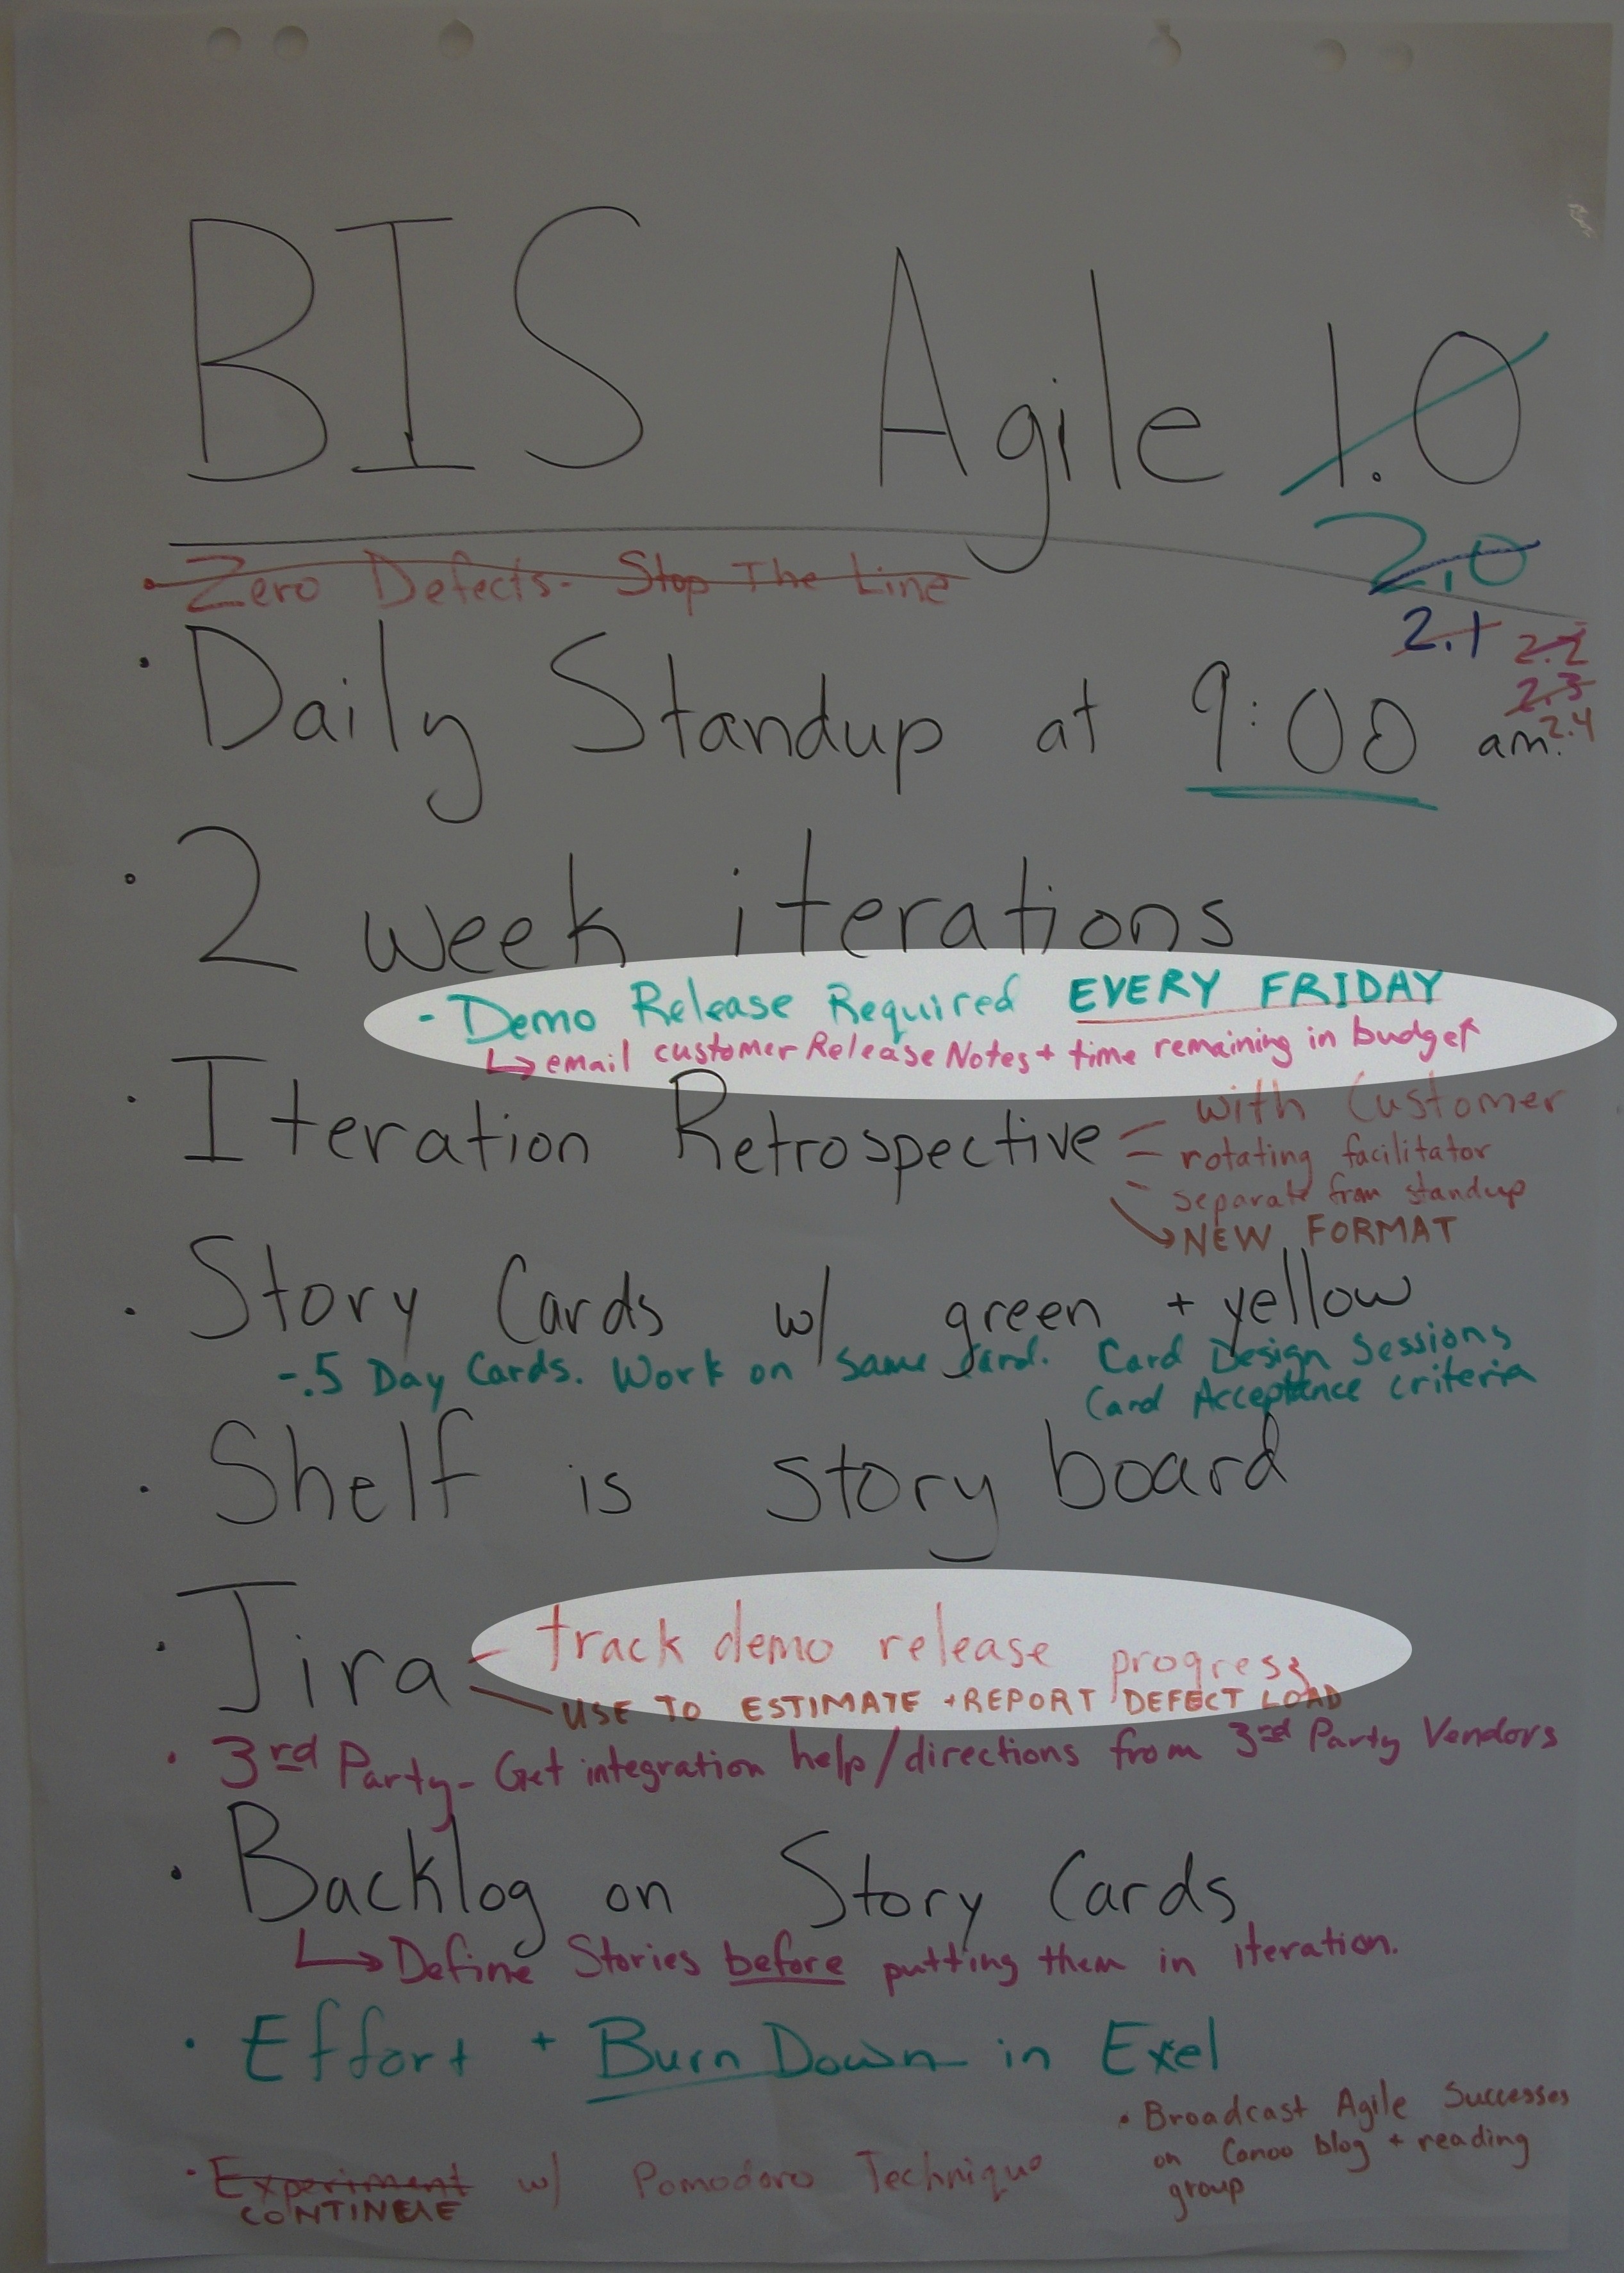 BIS Agile 1.0
2.0
2.1 2.2
2.3
2.4
• Zero Defects - Stop The Line
• Daily Standup at 9:00 am.
• 2 week iterations
- Demo Release Required EVERY FRIDAY
↳ email customer Release Notes + time remaining in budget
• Iteration Retrospective - with Customer
- rotating facilitator
- separate from standup
↘ NEW FORMAT
• Story Cards w/ green + yellow
- .5 Day Cards. Work on same card. Card Design Sessions
Card Acceptance criteria
• Shelf is story board
• Jira - track demo release progress
- USE TO ESTIMATE + REPORT DEFECT LOAD
• 3rd Party - Get integration help/directions from 3rd Party Vendors
• Backlog on Story Cards
↳ Define Stories before putting them in iteration.
• Effort + Burn Down in Exel
• Broadcast Agile Successes
on Canoo blog + reading
group
• Experiment w/ Pomodoro Technique
CONTINUE